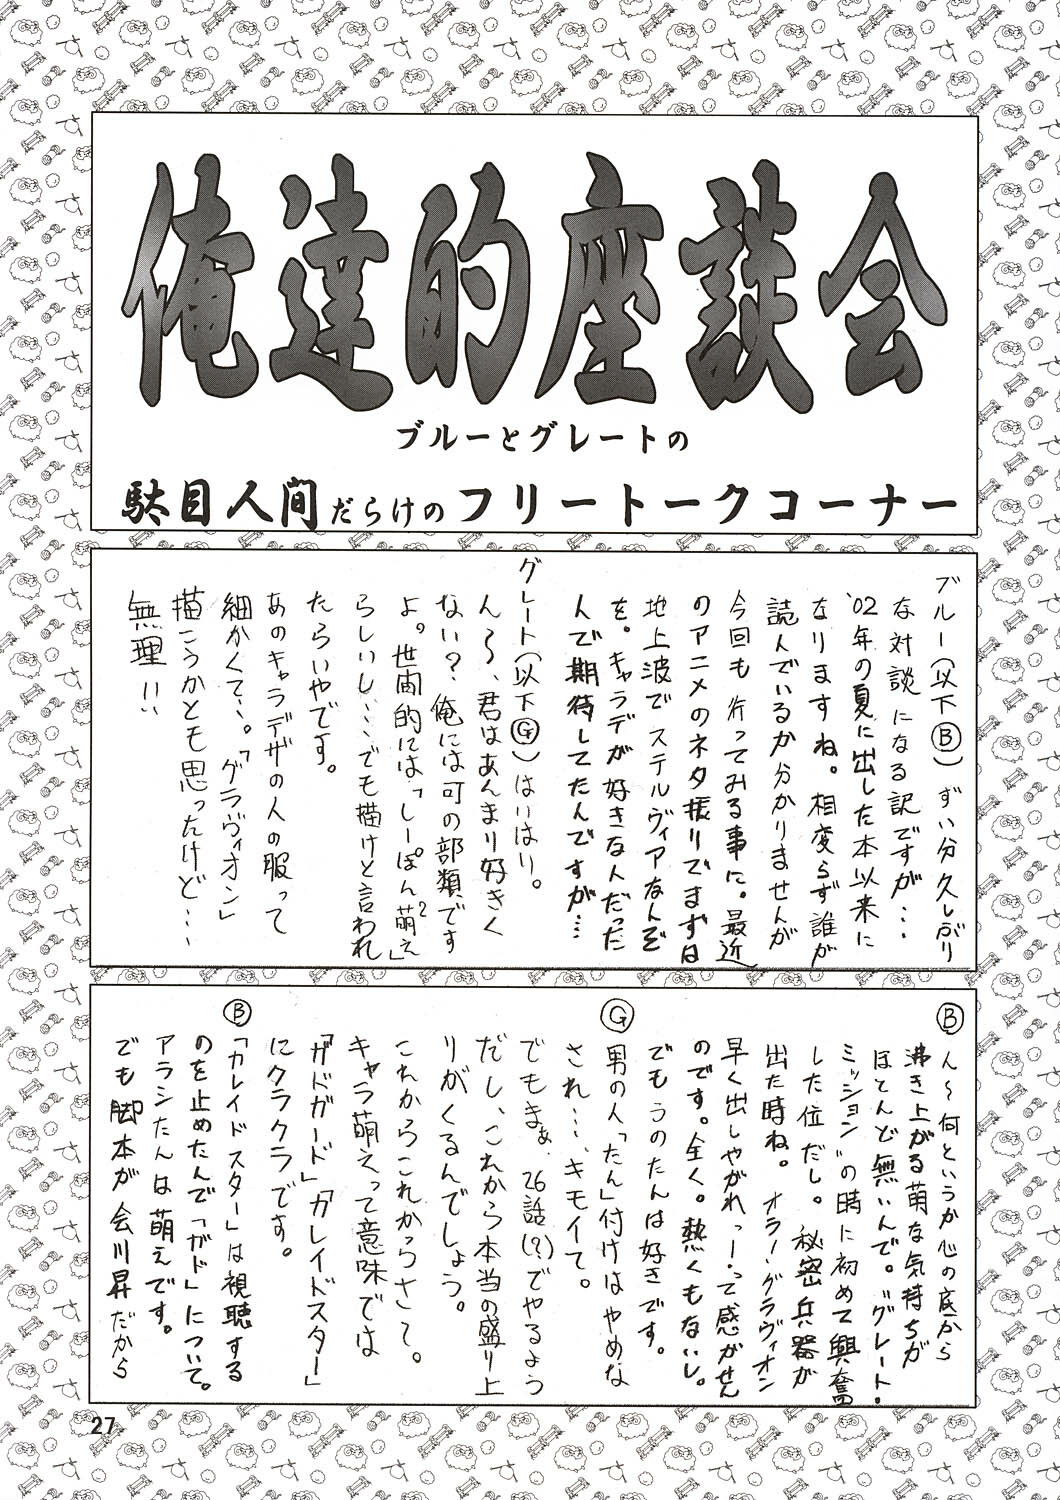 俺達的座談会
ブルーとグレートの
駄目人間だらけのフリートークコーナー
ブルー(以下Ⓑ)ずい分久しぶり
な対談になる訳ですが…
'02年の夏に出した本以来に
なりますね。相変らず誰が
読んでいるか分かりませんが
今回も行ってみる事に。最近
のアニメのネタ振りでまずは
地上波でステルヴィアなんぞ
を。キャラデが好きな人だった
んで期待してたんですが…
グレート(以下Ⓖ)はいはり。
ん〜、君はあんまり好きく
ない?俺には可の部類です
よ。世間的には「しーぽん萌え」?
らしいし…でも描けと言われ
たらいやです。
あのキャラデザの人の服って
細かくて…。「グラヴィオン」
描こうかとも思ったけど…
無理!!
Ⓑ
ん〜何というか心の底から
沸き上がる萌な気持ちが
ほとんど無いんで。"グレート・
ミッション"の時に初めて興奮
した位だし。秘密兵器が
出た時ね。オラーグラヴィオン
早く出しやがれっ!って感がせん
のです。全く。熱くもないし。
でもうのたんは好きです。
Ⓖ
男の人「たん」付けはやめな
され…、キモイて。
でもまぁ、26話(?)でやるよう
だし、これから本当の盛り上
りがくるんでしょう。
これからこれからさて。
キャラ萌えって意味では
「ガドガード」「カレイドスター」
にクラクラです。
Ⓑ
「カレイドスター」は視聴する
のを止めたんで「ガド」について。
アラシたんは萌えです。
でも脚本が会川昇だから
27